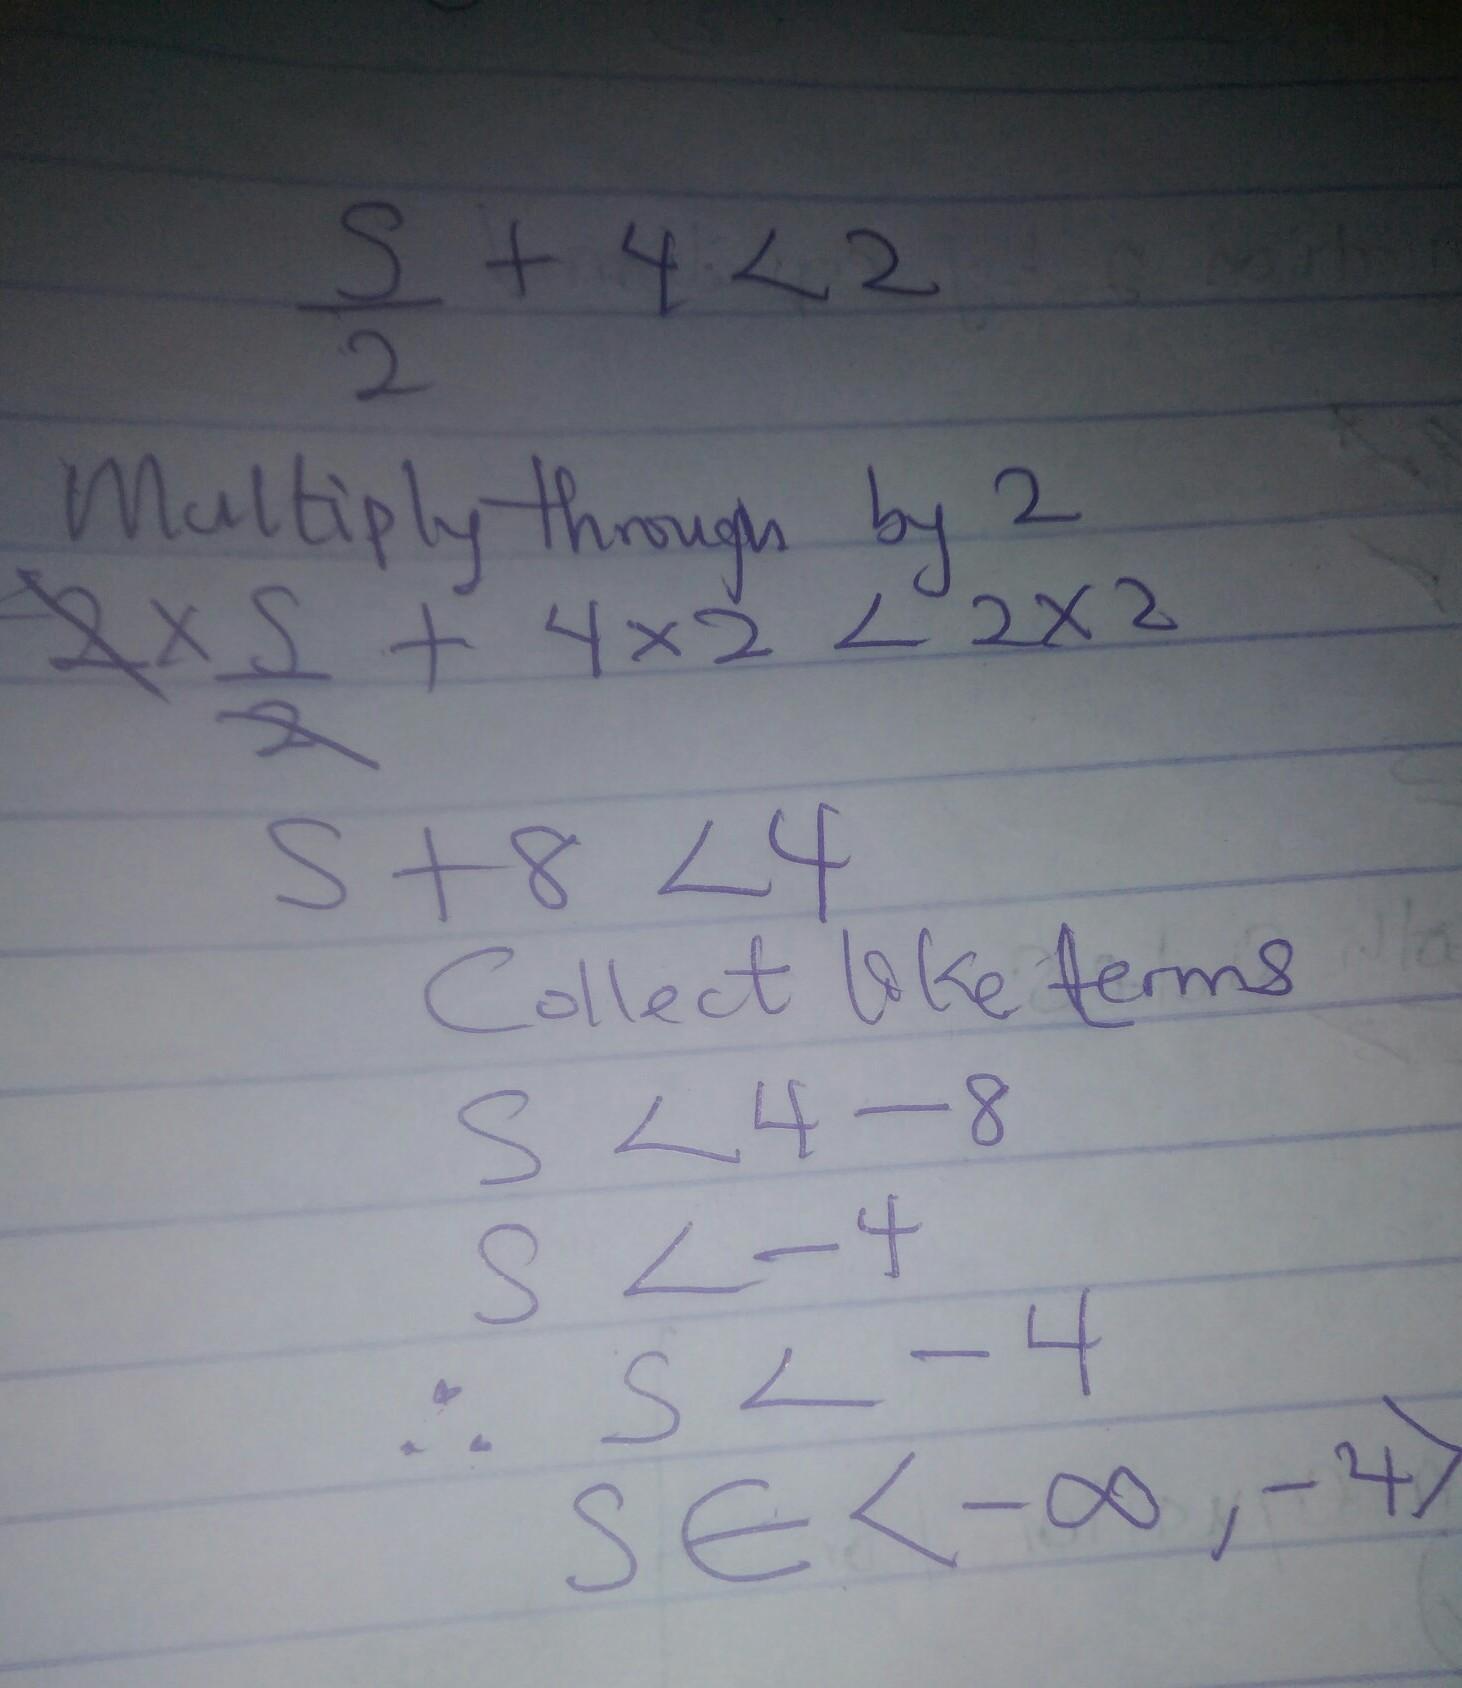 S/2 + 4 < 2
Multiply through by 2
2 × S/2 + 4 × 2 < 2 × 2
S + 8 < 4
Collect like terms
S < 4 − 8
S < −4
∴ S < −4
S ∈ < −∞, −4 >